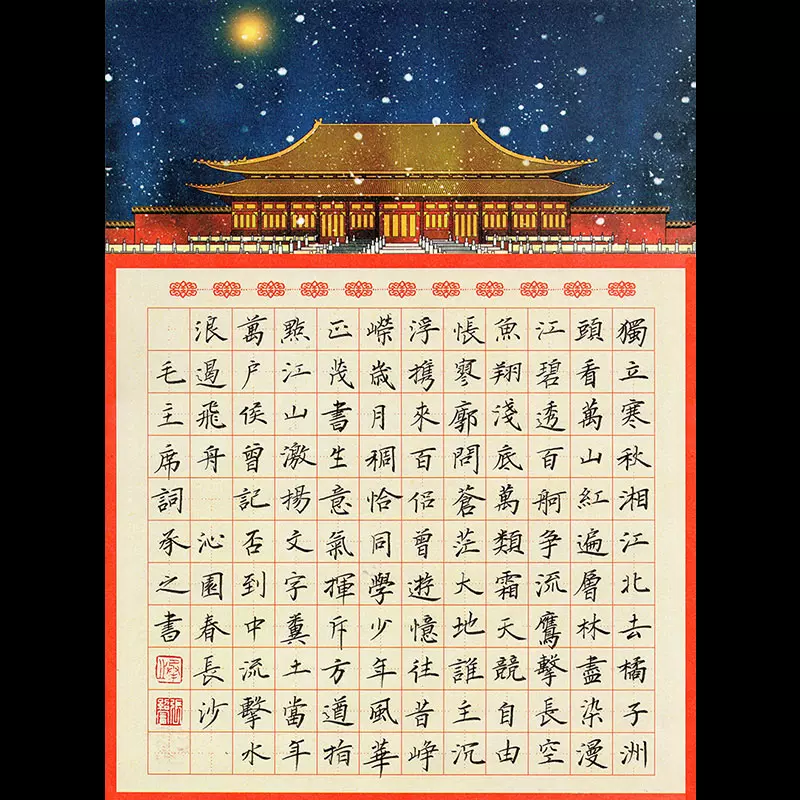 獨立寒秋湘江北去橘子洲
頭看萬山紅遍層林盡染漫
江碧透百舸争流鷹擊長空
魚翔淺底萬類霜天競自由
悵寥廓問蒼茫大地誰主沉
浮携來百侣曾遊憶往昔峥
嶸歲月稠恰同學少年風華
正茂書生意氣揮斥方遒指
點江山激揚文字糞土當年
萬户侯曾記否到中流擊水
浪遏飛舟 沁園春長沙
毛主席詞承之書